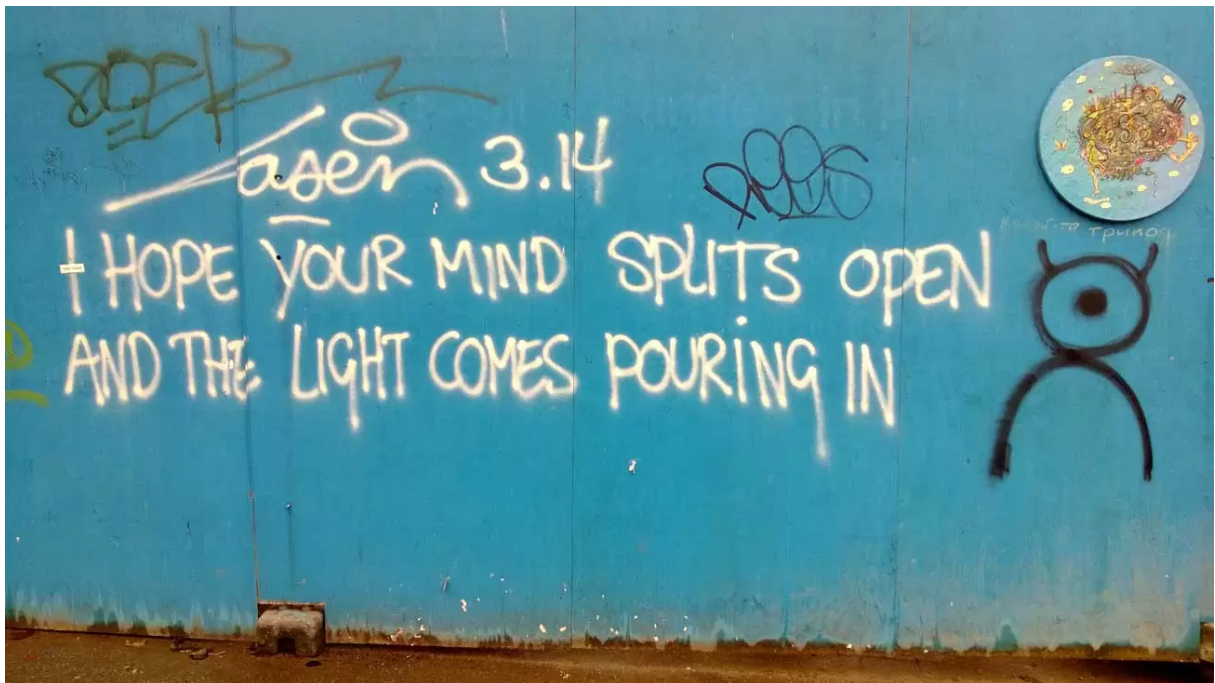 Laser 3.14
I HOPE YOUR MIND SPLITS OPEN
AND THE LIGHT COMES POURING IN